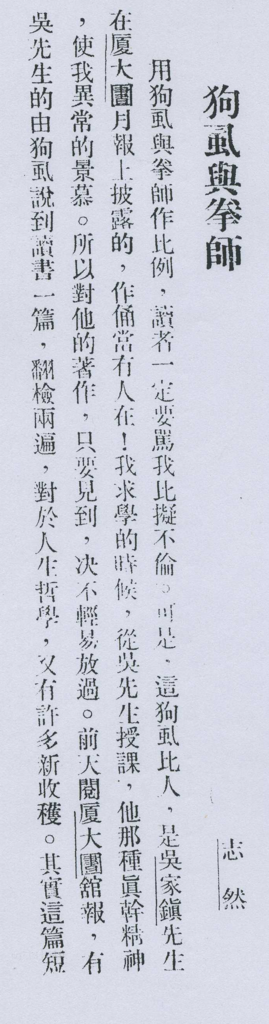 狗虱與拳師
志然
用狗虱與拳師作比例，讀者一定要罵我比擬不倫。可是，這狗虱比人，是吳家鎮先生
在厦大圕月報上披露的，作俑當有人在！我求學的時候，從吳先生授課，他那種眞幹精神
，使我異常的景慕。所以對他的著作，只要見到，决不輕易放過。前天閱厦大圕舘報，有
吳先生的由狗虱說到讀書一篇，翻檢兩遍，對於人生哲學，又有許多新收穫。其實這篇短